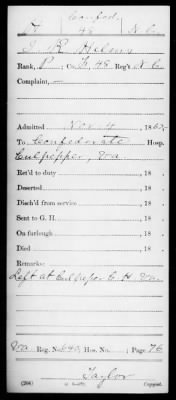 (Confed.)
H 48 N.C.
J. R. Helms
Rank, P Co. F, 48 Reg't N.C.
Complaint, —
Admitted Nov 4, 186
To Confederate Hosp.
Culpepper, Va
Ret'd to duty , 18
Deserted , 18
Disch'd from service , 18
Sent to G. H. , 18
On furlough , 18
Died , 18
Remarks:
Left at Culpeper C. H. Va
Va Reg. No. 640; Hos. No. ; Page 76
Taylor
Copyist.